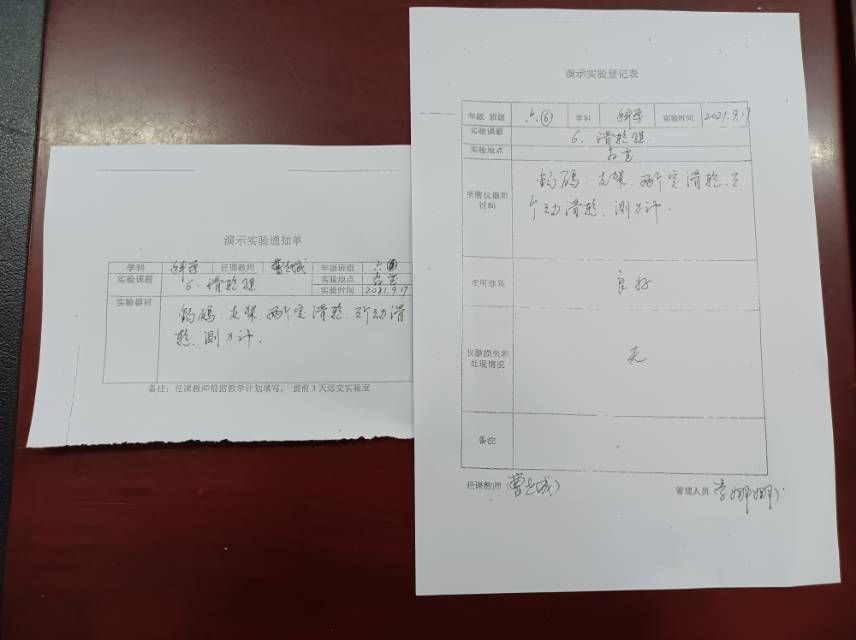 演示实验通知单
学科 科学 任课教师 年级班级 六⑥
实验课题 6. 滑轮组 实验地点 教室
实验时间 2021.9.17
实验器材 钩码 支架、两个定滑轮、两个动滑
轮、测力计.
备注：任课教师根据教学计划填写，提前3天送交实验室
演示实验登记表
年级 班级 六⑥ 学科 科学 实验时间 2021.9.17
实验课题 6. 滑轮组
实验地点 教室
所需仪器和材料 钩码、支架、两个定滑轮、
个动滑轮、测力计.
使用效果 良好
仪器损失和处理情况 无
备注
任课教师
管理人员 李娜娜